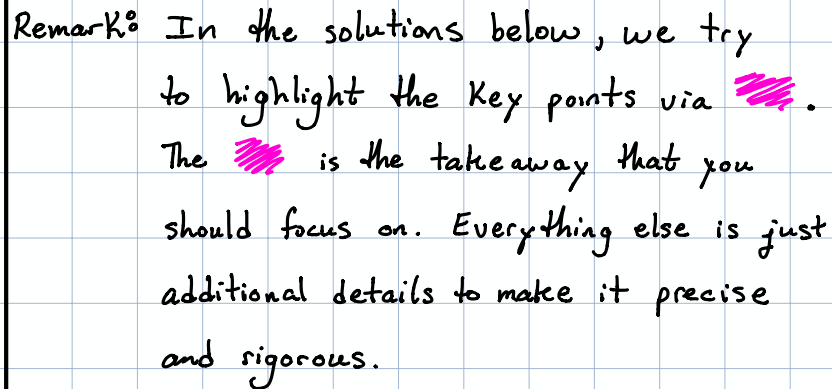 Remark: In the solutions below, we try
to highlight the key points via .
The is the takeaway that you
should focus on. Everything else is just
additional details to make it precise
and rigorous.